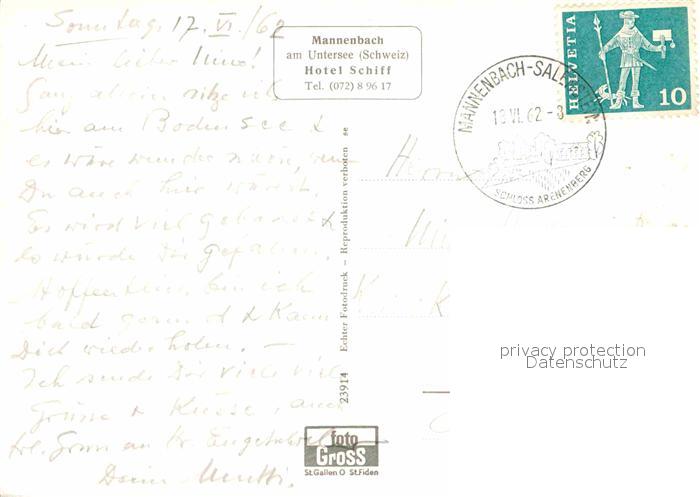 Sonntag, 17. VI. / 62
Mein lieber Nino!
Ganz allein sitze ich
hier am Bodensee &
es wäre wunderschön, wenn
Du auch hier wärest.
Es wird viel gebadet &
es würde Dir gefallen.
Hoffentlich bin ich
bald gesund & kann
Dich wieder holen. –
Ich sende Dir viele viele
Grüsse & Küsse, auch
frl. Gruss an
Deine Mutti.
Mannenbach
am Untersee (Schweiz)
Hotel Schiff
Tel. (072) 8 96 17
23914 Echter Fotodruck – Reproduktion verboten se
foto
GROSS
St.Gallen O St.Fiden
MANNENBACH-SAL
18.VI.62-8
SCHLOSS ARENENBERG
HELVETIA
10
Herrn
privacy protection
Datenschutz